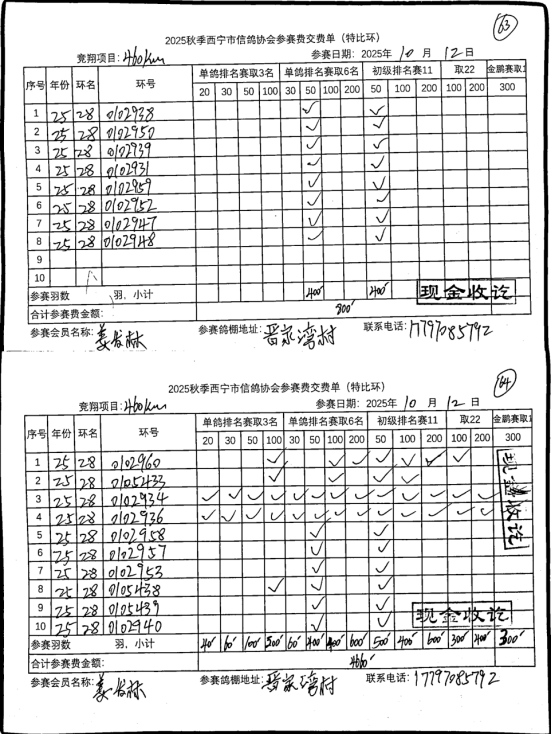 63
2025秋季西宁市信鸽协会参赛费交费单（特比环）
竞翔项目: 460km 参赛日期: 2025年 10 月 12 日
序号 年份 环名 环号 单鸽排名赛取3名 单鸽排名赛取6名 初级排名赛11 取22 金鹏赛取1
20 30 50 100 30 50 100 200 50 100 200 100 200 300
1 25 28 0102938 ✓ ✓
2 25 28 0102950 ✓ ✓
3 25 28 0102939 ✓ ✓
4 25 28 0102931 ✓ ✓
5 25 28 0102959 ✓ ✓
6 25 28 0102952 ✓ ✓
7 25 28 0102947 ✓ ✓
8 25 28 0102948 ✓ ✓
9
10
参赛羽数 羽、小计 400 400 现金收讫
合计参赛费金额: 800
参赛会员名称: 姜发林 参赛鸽棚地址: 晋家湾村 联系电话: 17797085792
64
2025秋季西宁市信鸽协会参赛费交费单（特比环）
竞翔项目: 460km 参赛日期: 2025年 10 月 12 日
序号 年份 环名 环号 单鸽排名赛取3名 单鸽排名赛取6名 初级排名赛11 取22 金鹏赛取1
20 30 50 100 30 50 100 200 50 100 200 100 200 300
1 25 28 0102960 ✓ ✓ ✓ ✓ ✓ ✓ ✓
2 25 28 0105433 ✓ ✓ ✓ ✓
3 25 28 0102934 ✓ ✓ ✓ ✓ ✓ ✓ ✓ ✓ ✓ ✓ ✓ ✓ ✓
4 25 28 0102936 ✓ ✓ ✓ ✓ ✓ ✓ ✓ ✓ ✓ ✓ ✓ ✓ ✓
5 25 28 0102958 ✓ ✓
6 25 28 0102957 ✓ ✓
7 25 28 0102953 ✓ ✓
8 25 28 0105438 ✓ ✓ ✓
9 25 28 0105439 ✓ ✓
10 25 28 0102940 ✓ ✓
现金收讫
现金收讫
参赛羽数 羽、小计 40 60 100 500 60 400 600 500 400 600 300 400 300
合计参赛费金额: 4660
参赛会员名称: 姜发林 参赛鸽棚地址: 晋家湾村 联系电话: 17797085792